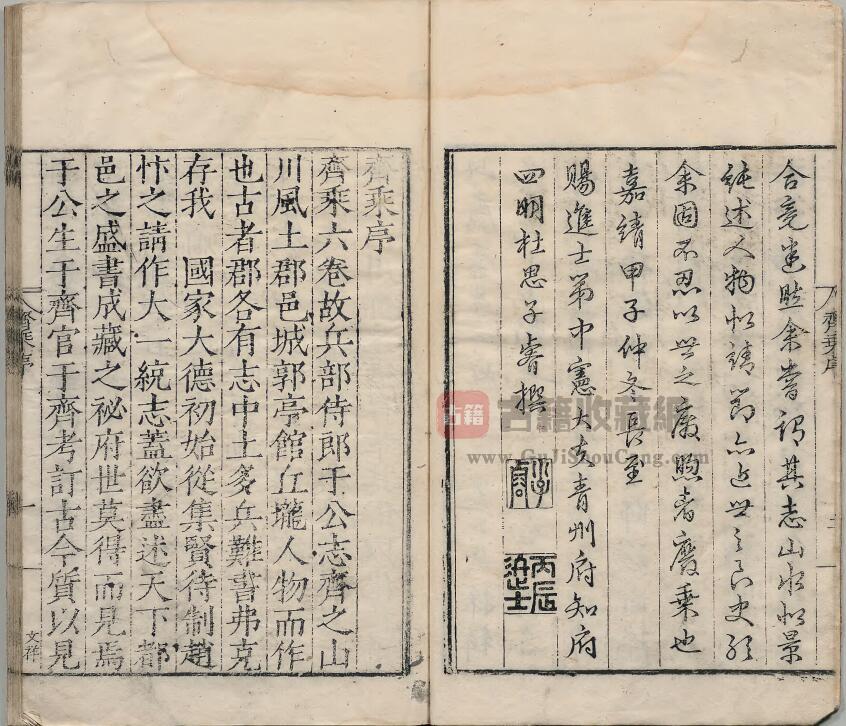 合竟遑賍余嘗謂其志山水如景
純述人物如靖節亦近世之良史孫
余固不忍以世之廢𤋮者廢乘也
嘉靖甲子仲冬長至
賜進士第中憲大夫青州府知府
四明杜思子睿撰
子睿
丙辰進士
齊乘序
二
齊乘序
齊乘六卷故兵部侍郎于公志齊之山
川風土郡邑城郭亭館丘壠人物而作
也古者郡各有志中土多兵難書弗克
存我　國家大德初始從集賢待制趙
忭之請作大一統志蓋欲盡述天下都
邑之盛書成藏之祕府世莫得而見焉
于公生于齊官于齊考訂古今質以見
齊乘序
一
文祥
古籍
古籍收藏網
www.GuJiShouCang.com